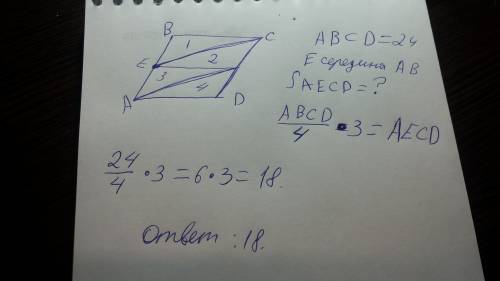 B
C
1
2
E
3
4
A
D
ABCD=24
E середина AB
SAECD=?
ABCD/4 • 3 = AECD
24/4 • 3 = 6 • 3 = 18.
Ответ : 18.